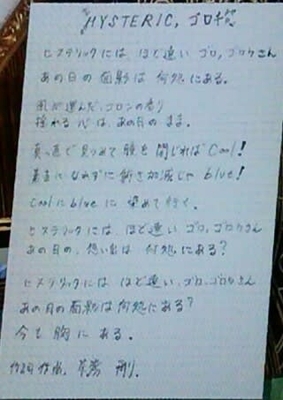 HYSTERIC, ゴロ
ヒステリックには、ほど遠い ゴロ、ゴロウさん
あの日の面影は 何処にある。
風が運んだ、コロンの香り
揺れる心は、あの日のまま。
真っ直ぐ見つめて 瞼を閉じれば Cool!
素直になれずに blue!
Coolにblueに 染めて行く。
ヒステリックには、ほど遠い ゴロ、ゴロウさん
あの日の、想い出は 何処にある?
ヒステリックには ほど遠い、ゴロ、ゴロウさん
あの日の面影は何処にある?
今も 胸に ある。
作詞 作曲、草彅 剛.